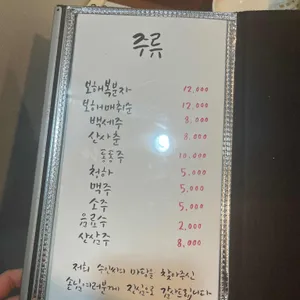 주류
보해복분자 12,000
보해매취순 12,000
백세주 8,000
산사춘 8,000
동동주 10,000
청하 5,000
맥주 5,000
소주 5,000
음료수 2,000
산삼주 8,000
저희 마당을 찾아주신
손님여러분께 진심으로 감사드립니다